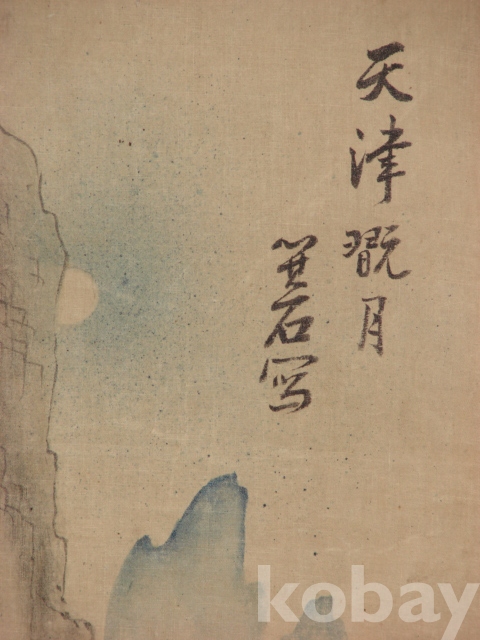 天津翫月
箕石写
kobay